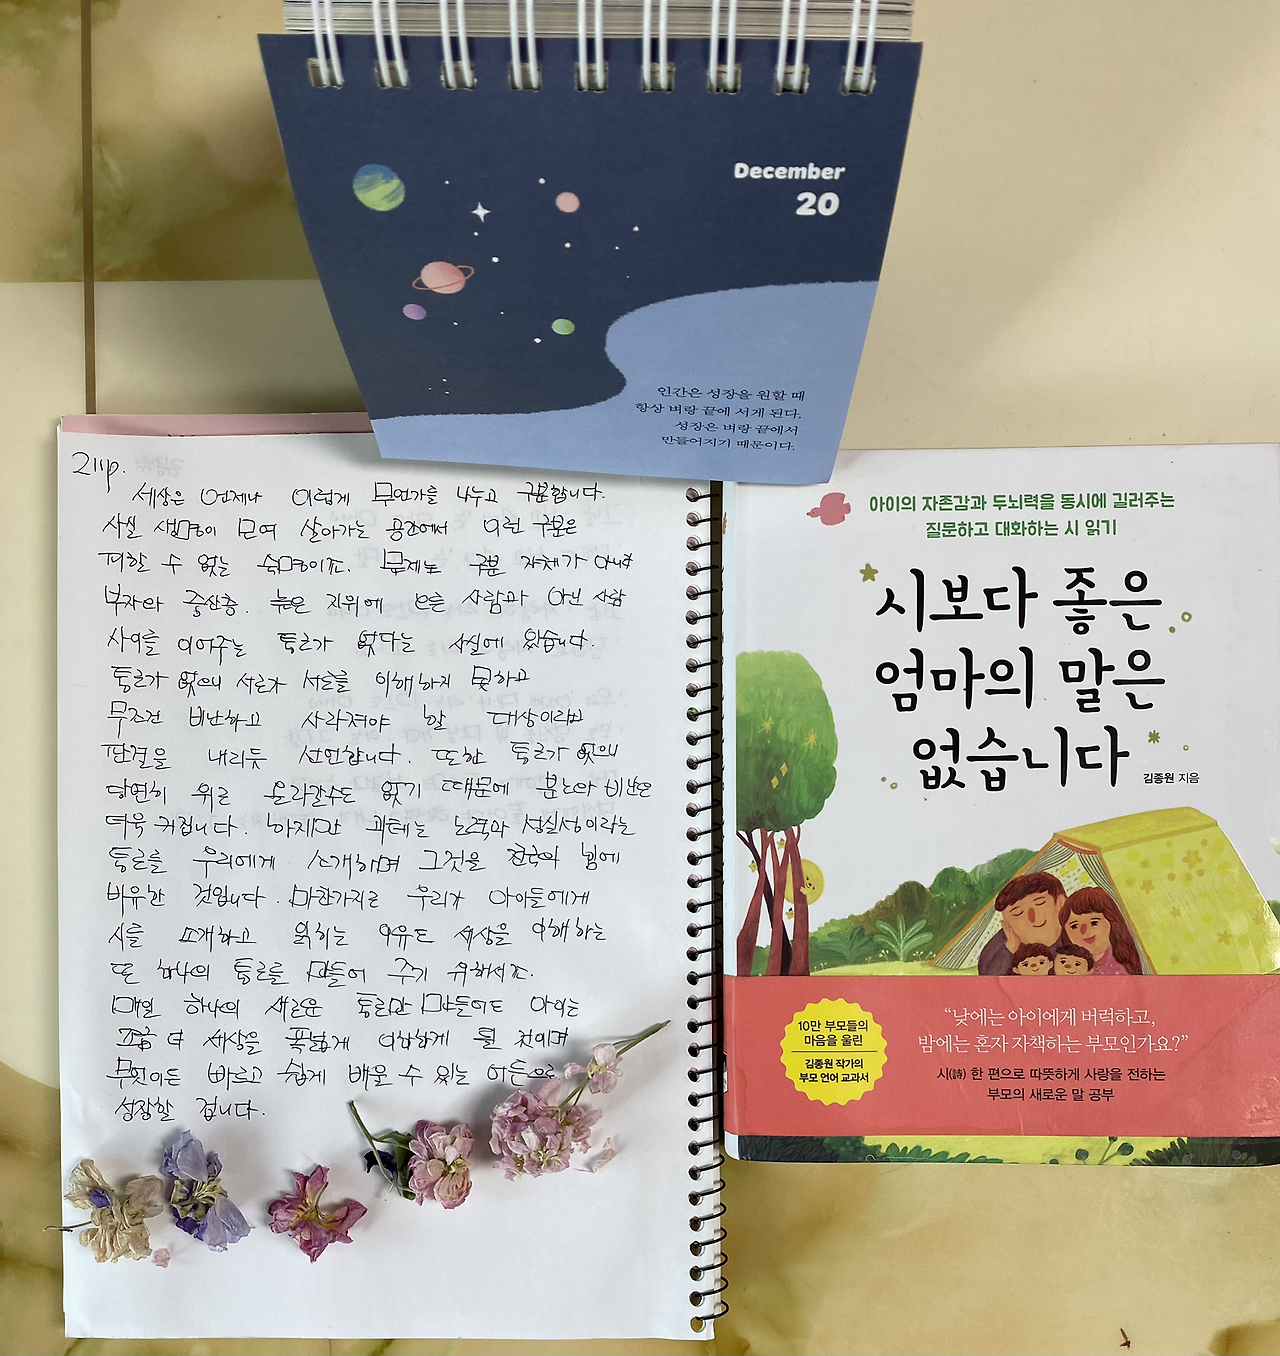 December
20
인간은 성장을 원할 때
항상 벼랑 끝에 서게 된다.
성장은 벼랑 끝에서
만들어지기 때문이다.
211p.
세상은 언제나 이렇게 무언가를 나누고 구분합니다.
사실 생명이 모여 살아가는 공간에서 이런 구분은
피할 수 없는 숙명이죠. 문제는 구분 자체가 아니라
부자와 중산층. 높은 지위에 오른 사람과 아닌 사람
사이를 이어주는 통로가 없다는 사실에 있습니다.
통로가 없으니 서로가 서로를 이해하지 못하고
무조건 비난하고 사라져야 할 대상이라고
판결을 내리듯 선언합니다. 또한 통로가 없으니
당연히 위로 올라갈수도 없기 때문에 분노와 비난은
더욱 커집니다. 하지만 괴테는 노력과 성실성이라는
통로를 우리에게 소개하며 그것을 천국의 힘에
비유한 것입니다. 마찬가지로 우리가 아이들에게
시를 소개하고 읽히는 이유도 세상을 이해하는
또 하나의 통로를 만들어 주기 위해서죠.
매일 하나의 새로운 통로만 만들어도 아이는
조금 더 세상을 폭넓게 이해하게 될 것이며
무엇이든 빠르고 쉽게 배울 수 있는 어른으로
성장할 겁니다.
아이의 자존감과 두뇌력을 동시에 길러주는
질문하고 대화하는 시 읽기
시보다 좋은
엄마의 말은
없습니다
김종원 지음
10만 부모들의
마음을 울린
김종원 작가의
부모 언어 교과서
“낮에는 아이에게 버럭하고,
밤에는 혼자 자책하는 부모인가요?”
시(詩) 한 편으로 따뜻하게 사랑을 전하는
부모의 새로운 말 공부